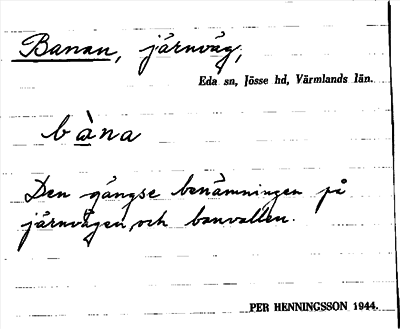 Banan, järnväg,
Eda sn, Jösse hd, Värmlands län.
bàna
Den gängse benämningen på
järnvägen, och banvallen.
PER HENNINGSSON 1944.